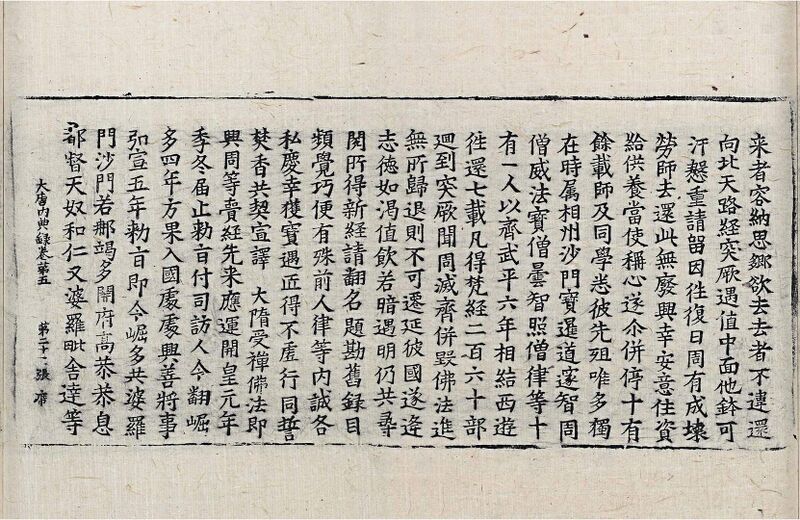 来者容納思鄉欲去去者不違還
向北天路經突厥遇值中面他鉢可
汗慇重請留因往復日周有成壊
勞師去還此無廢興幸安意住資
給供養當使稱心遂介併停十有
餘載師及同學悉彼先殂唯多獨
在時属相州沙門寶暹道邃智周
僧威法寶僧曇智照僧律等十
有一人以齊武平六年相結西遊
往還七載凡得梵經二百六十部
迴到突厥聞周滅齊併毀佛法進
無所歸退則不可遷延彼國遂逢
志徳如渴值飲若暗遇明仍共尋
閱所得新經請翻名題勘舊録目
頻覺巧便有殊前人律等内誠各
私慶幸獲寶遇匠得不虛行同誓
焚香共契宣譯 大隋受禪佛法即
興周等賷經先来應運開皇元年
季冬届止勅旨付司訪人令翻崛
多四年方果入國處處興善將事
弘宣五年勅旨即令崛多共婆羅
門沙門若那竭多開府高恭恭息
都督天奴和仁又婆羅毗舍達等
大唐内典録卷第五 第二十二張 席